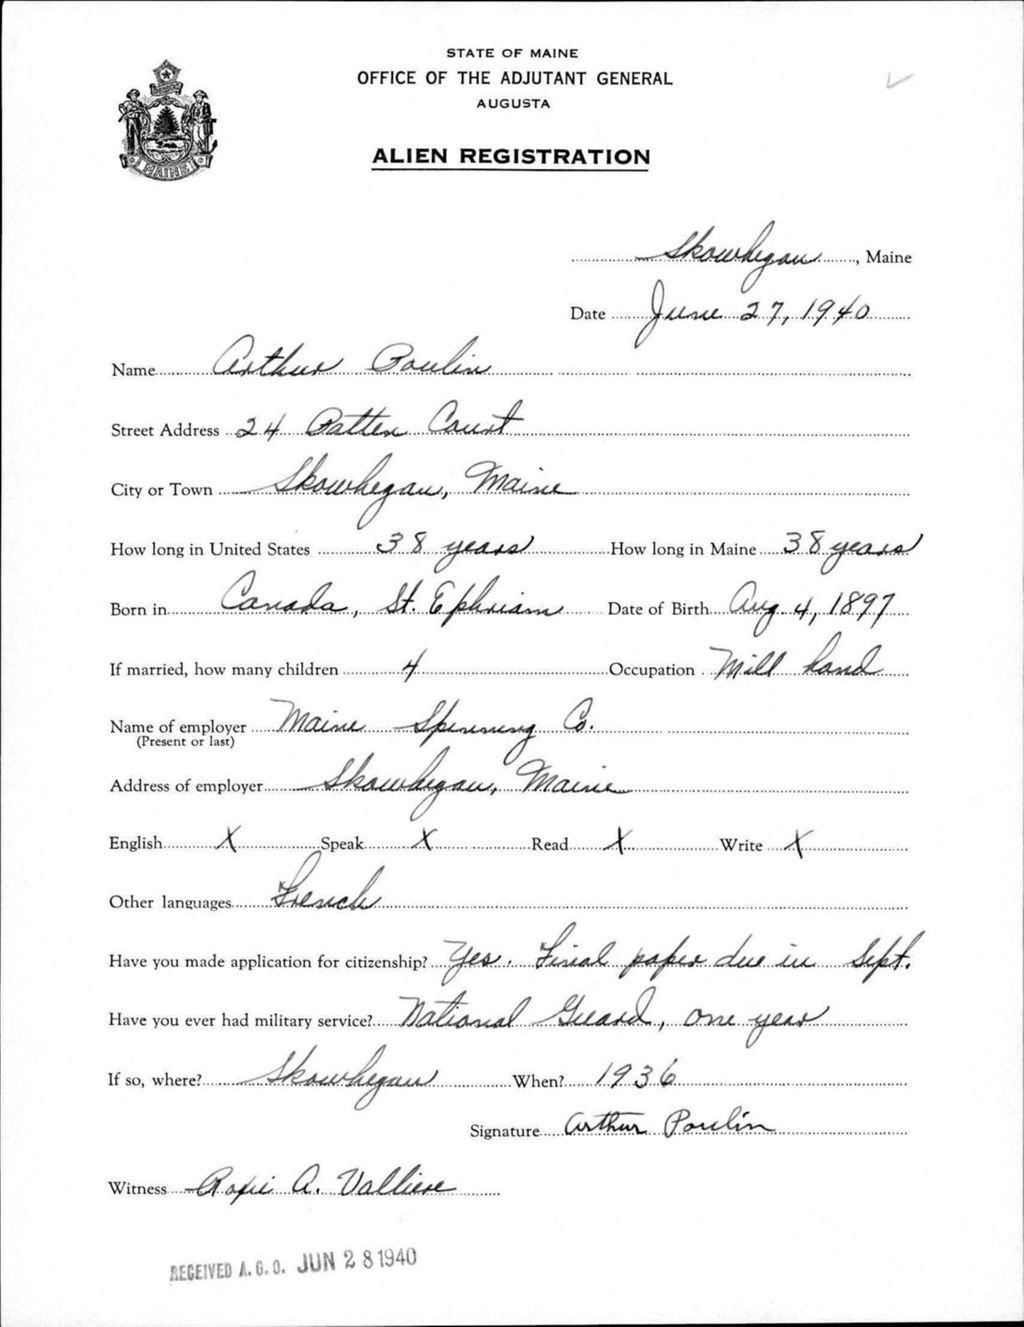 STATE OF MAINE
OFFICE OF THE ADJUTANT GENERAL
AUGUSTA
ALIEN REGISTRATION
MAINE
Skowhegan, Maine
Date June 27, 1940
Name Arthur Poulin
Street Address 24 Patten Court
City or Town Skowhegan, Maine
How long in United States 38 years How long in Maine 38 years
Born in Canada, St. Ephriam Date of Birth Aug 4, 1897
If married, how many children 4 Occupation Mill hand
Name of employer Maine Spinning Co.
(Present or last)
Address of employer Skowhegan, Maine
English X Speak X Read X Write X
Other languages French
Have you made application for citizenship? Yes. Final paper due in Sept.
Have you ever had military service? National Guard, one year
If so, where? Skowhegan When? 1936
Signature Arthur Poulin
Witness Roxie A. Valliere
RECEIVED A.G.O. JUN 28 1940